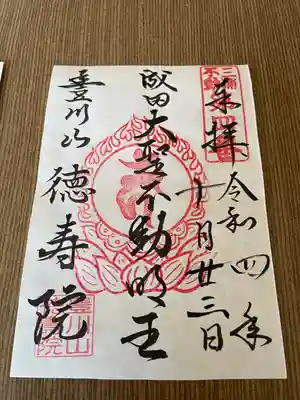 奉拝
令和四年
十月廿三日
成田大聖不動明王
豊川山
徳寿院
三浦
不動